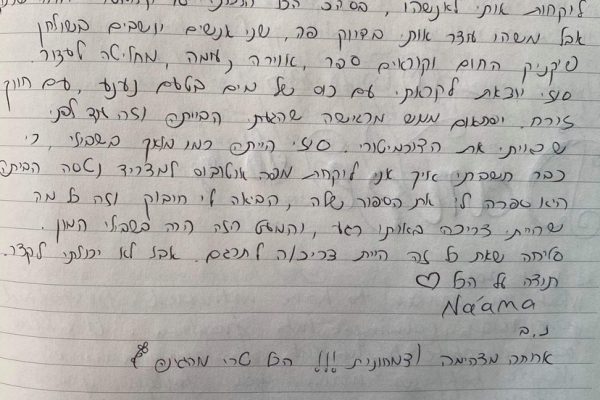 לוקחות אותי לאנשהו, בסהכ הכל
אבל משהו עצר אותי בדיוק פה, שני אנשים יושבים בשולחן
פיקניק החום וקוראים ספר, אווירה נעימה, מחליטה לעצור.
סוזי יוצאת לקראתי עם כוס של מים בטעם נענע, עם חיוך
זורח. ופתאום ממש מרגישה שהגעתי הביתה וזה עוד לפני
שראיתי את הדורמיטורי. סוזי הייתה כמו מלאך בשבילי, כי
כבר חשבתי איך אני לוקחת מפה אוטובוס למדריד וטסה הביתה
היא ספרה לי את הסיפור שלה, הביאה לי חיבוק וזה כל מה
שהייתי צריכה באותו רגע, והמעט הזה היה בשבילי המון.
סליחה שאת כל זה היית צריכה לתרגם. אבל לא יכולתי לקצר.
תודה על הכל ♡
Na'ama
נ.ב
ארוחה מדהימה וצמחונית !!! הכל טרי מהגינה